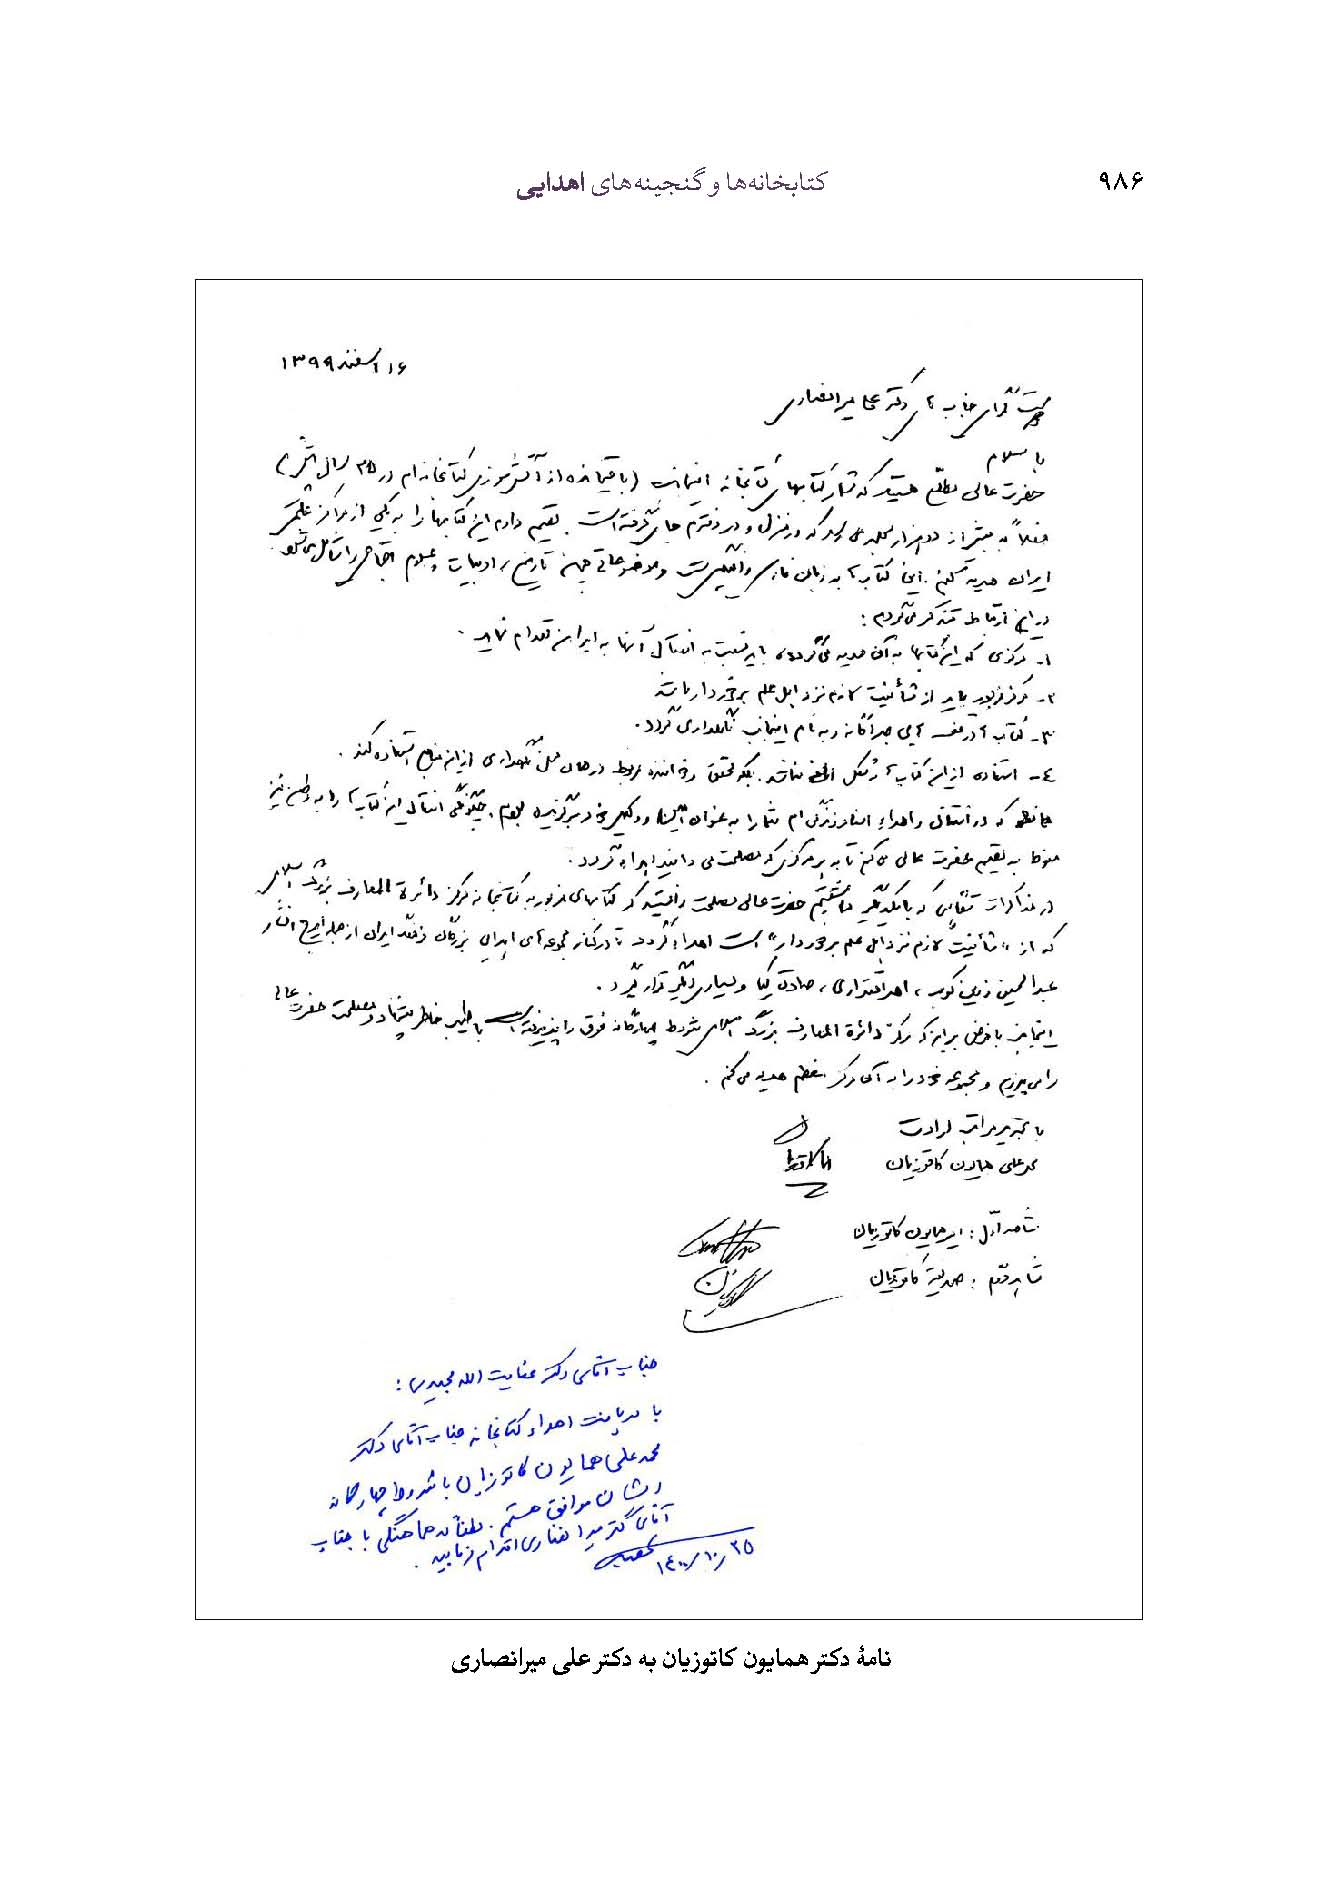 ۹۸۶
کتابخانه‌ها و گنجینه‌های اهدایی
۱۶ اسفند ۱۳۹۹
دوست گرامی جناب آقای دکتر علی میرانصاری
با سلام
حضرت عالی مطلع هستید که شمار کتابهای کتابخانه اینجانب (باقیمانده از آتش‌سوزی کتابخانه‌ام در ۳۵ سال پیش)
فعلاً به بیش از دو هزار جلد می‌رسد که در منزل و در دفترم جای گرفته است. تصمیم دارم این کتابها را به یکی از مراکز علمی
ایران هدیه کنم. این کتابها به زبان فارسی و انگلیسی است و موضوعاتی چون تاریخ، ادبیات و علوم اجتماعی را شامل می‌شود.
در این ارتباط متذکر می‌گردم:
۱- مرکزی که این کتابها به آن هدیه می‌گردد، باید نسبت به انتقال آنها به ایران اقدام نماید.
۲- مرکز مزبور باید از شأنیت لازم نزد اهل علم برخوردار باشد
۳- کتابها در قفسه‌هایی جداگانه و به نام اینجانب نگهداری گردد.
٤- استفاده از این کتابها به شکل امانی نباشد. بلکه محقق و خواننده مربوط در همان محل نگهداری از این منابع استفاده کند.
همانطور که در انتقال و اهداء اسناد زندگی‌ام شما را به عنوان امین و وکیل خود برگزیده بودم، چگونگی انتقال این کتابها را به وطن نیز
منوط به تصمیم حضرت عالی می‌کنم تا به هر مرکزی که مصلحت می‌دانید اهداء گردد.
در مذاکرات تلفنی که با یکدیگر داشتیم حضرت عالی مصلحت دانستید که کتابهای مزبور به کتابخانه مرکز دائرة المعارف بزرگ اسلامی
که از «شأنیت لازم نزد اهل علم برخوردار» است اهداء گردد تا در کنار مجموعه‌های اهدایی بزرگان فرهنگ ایران از جمله ایرج افشار
عبدالحسین زرین‌کوب، احمد اقتداری، صادق کیا و بسیاری دیگر قرار گیرد.
اینجانب با فرض براینکه مرکز دائرة المعارف بزرگ اسلامی شروط چهارگانه فوق را پذیرفته است با طیب خاطر پیشنهاد و مصلحت حضرت عالی
را می‌پذیرم و مجموعه خود را به آن مرکز معظم هدیه می‌کنم.
با تجدید مراتب ارادت
محمدعلی همایون کاتوزیان
شاهد اول: امیر همایون کاتوزیان
شاهد دوم: کاتوزیان
جناب آقای دکتر عنایت الله مجیدی:
با دریافت اهداء کتابخانه جناب آقای دکتر
محمدعلی همایون کاتوزیان با شروط چهارگانه
ایشان موافق هستم. لطفاً با هماهنگی با جناب
آقای دکتر میرانصاری اقدام فرمایید.
۱۴۰۰/۱۰/۲۵
نامهٔ دکتر همایون کاتوزیان به دکتر علی میرانصاری